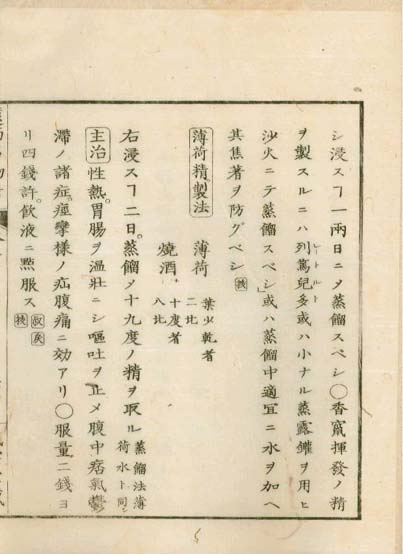 シ浸スヿ一兩日ニメ蒸餾スベシ○香竄揮發ノ精
ヲ製スルニハ列篤兒多或ハ小ナル蒸露鑵ヲ用ヒ
レートルト
沙火ニテ蒸餾スベシ」或ハ蒸餾中適宜ニ水ヲ加ヘ
其焦著ヲ防グベシ 扶
薄荷精製法 薄荷 葉少乾者 二比
燒酒 十度者 八比
右浸スヿ二日。蒸餾メ十九度ノ精ヲ取ル 蒸餾法薄荷水ト同。
主治 性熱。胃腸ヲ溫壯ニシ嘔吐ヲ止メ腹中痞氣鬱
滯ノ諸症。痙攣樣ノ疝腹痛ニ効アリ○服量二錢ヨ
リ四錢許。飲液ニ點服ス 扶